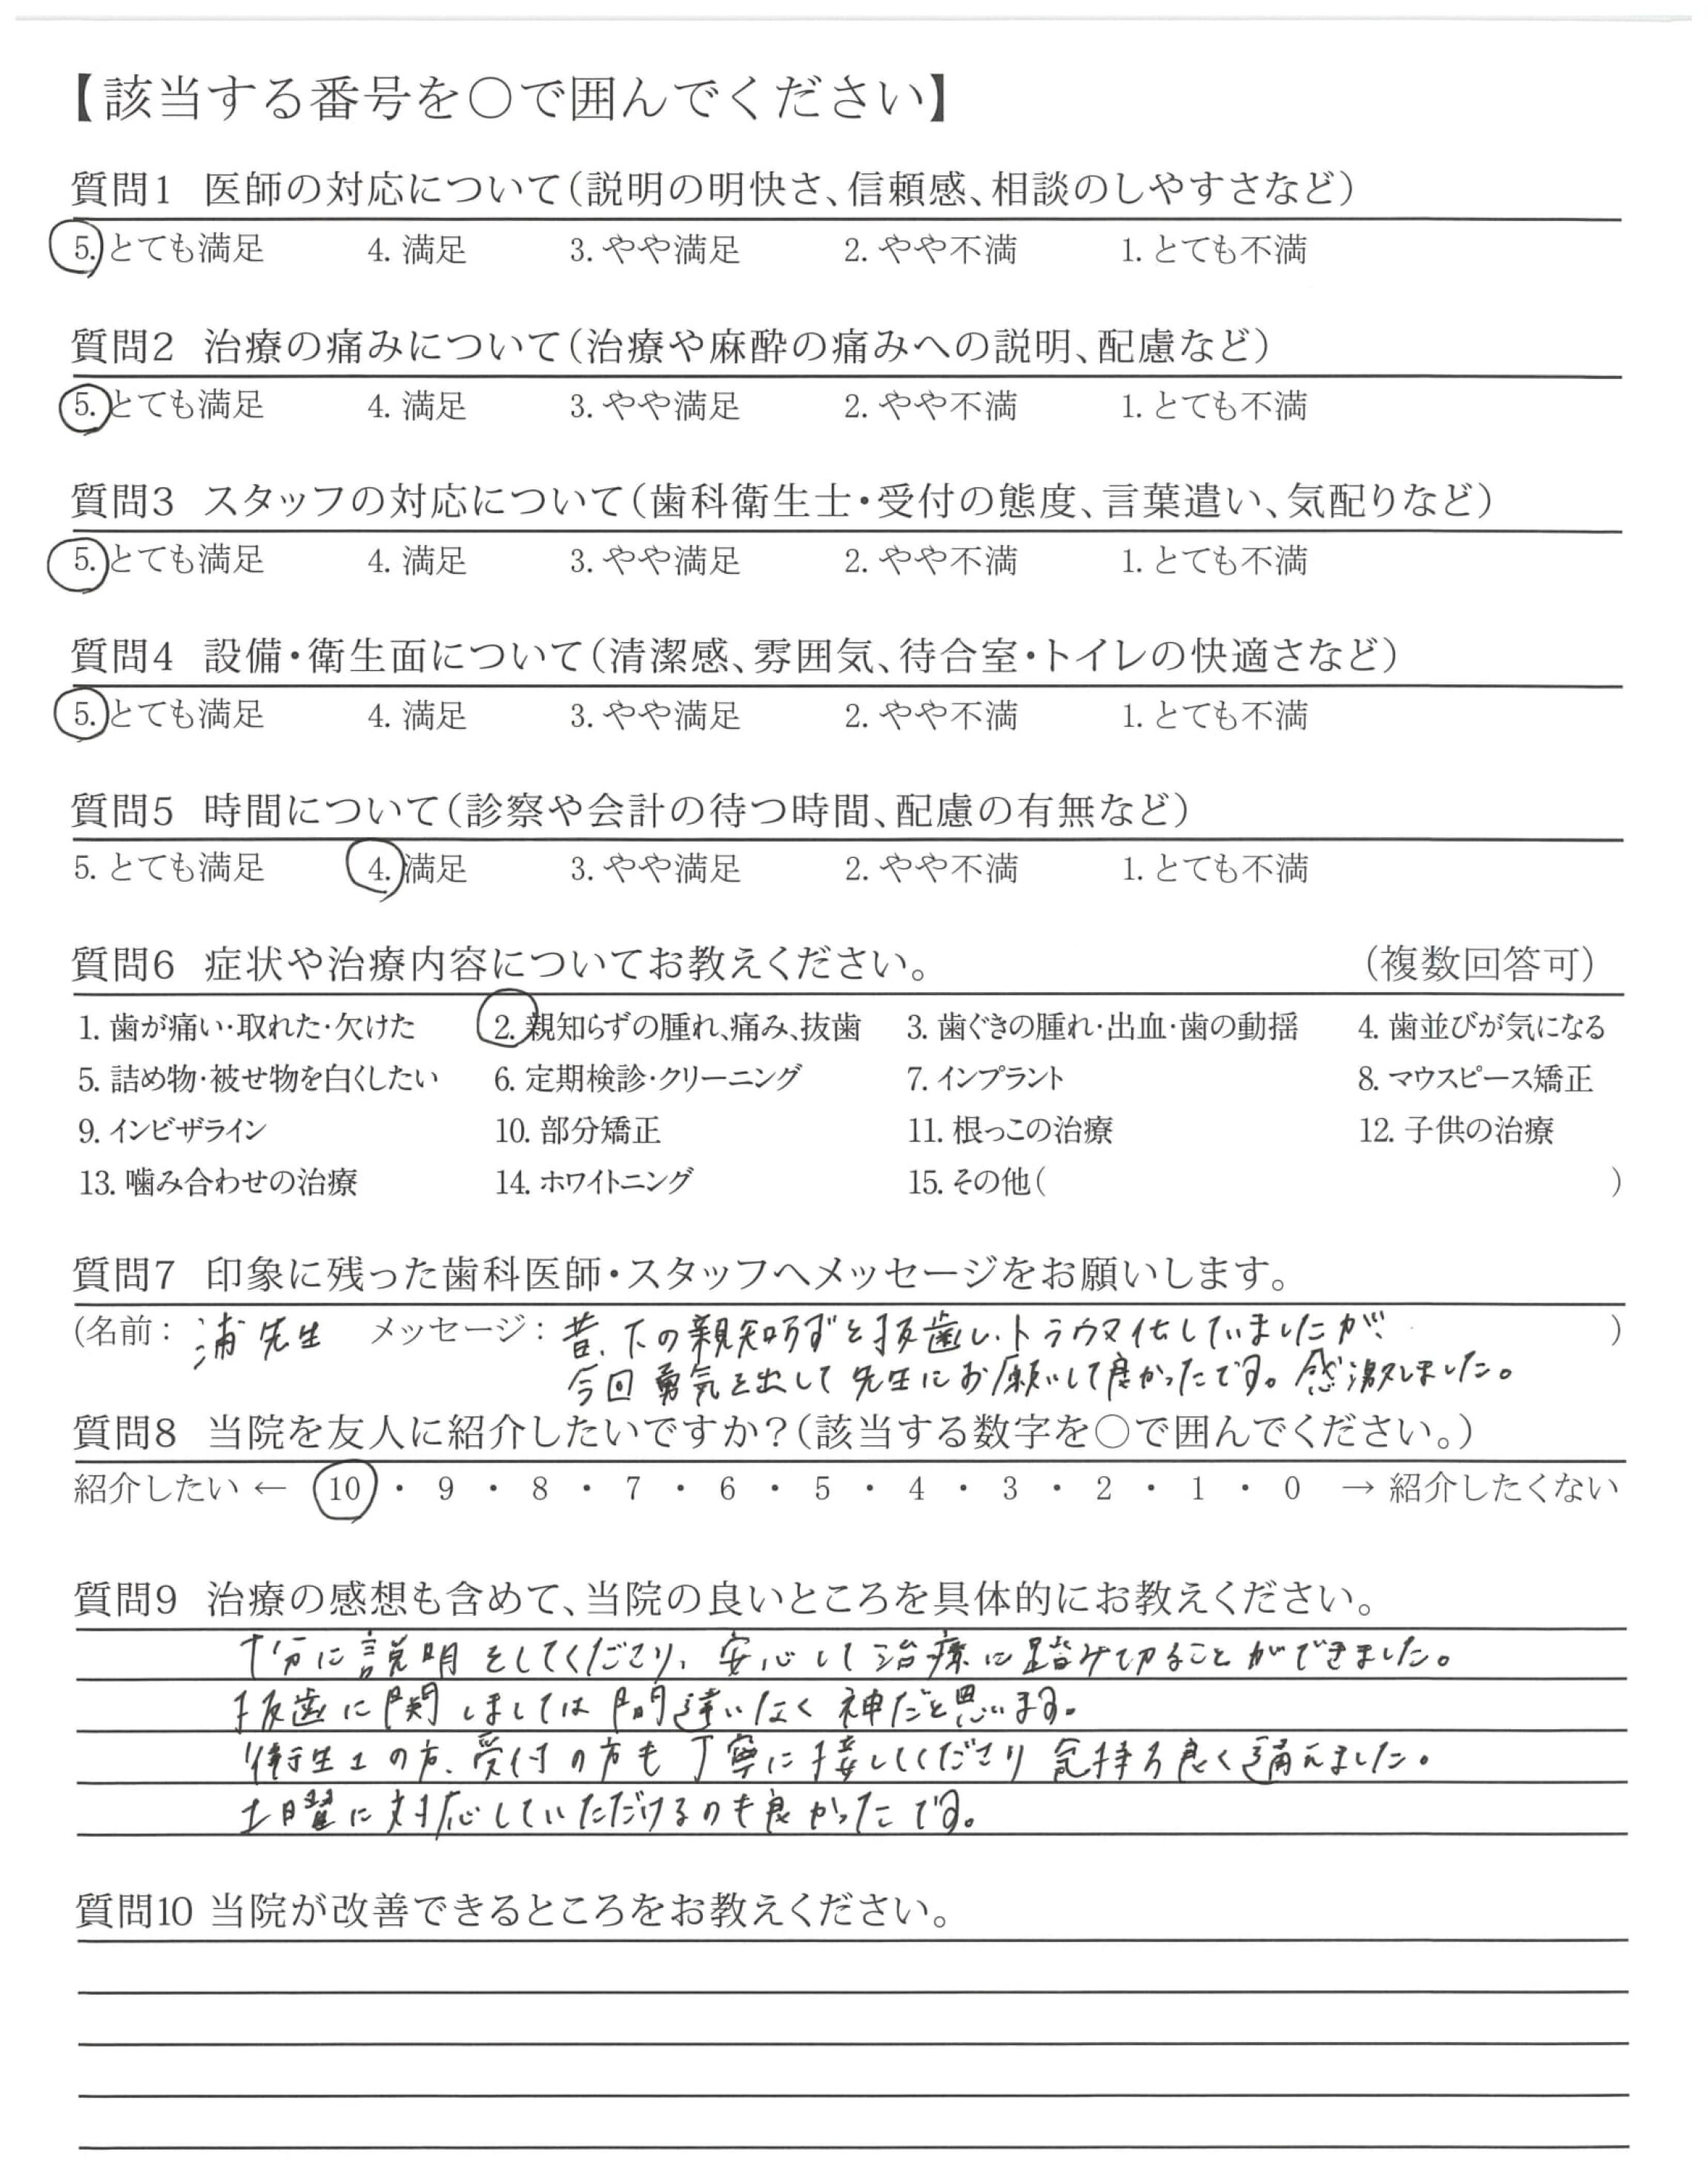 【該当する番号を○で囲んでください】
質問1 医師の対応について(説明の明快さ、信頼感、相談のしやすさなど)
5. とても満足 4. 満足 3. やや満足 2. やや不満 1. とても不満
質問2 治療の痛みについて(治療や麻酔の痛みへの説明、配慮など)
5. とても満足 4. 満足 3. やや満足 2. やや不満 1. とても不満
質問3 スタッフの対応について(歯科衛生士・受付の態度、言葉遣い、気配りなど)
5. とても満足 4. 満足 3. やや満足 2. やや不満 1. とても不満
質問4 設備・衛生面について(清潔感、雰囲気、待合室・トイレの快適さなど)
5. とても満足 4. 満足 3. やや満足 2. やや不満 1. とても不満
質問5 時間について(診察や会計の待つ時間、配慮の有無など)
5. とても満足 4. 満足 3. やや満足 2. やや不満 1. とても不満
質問6 症状や治療内容についてお教えください。 (複数回答可)
1. 歯が痛い・取れた・欠けた 2. 親知らずの腫れ、痛み、抜歯 3. 歯ぐきの腫れ・出血・歯の動揺 4. 歯並びが気になる
5. 詰め物・被せ物を白くしたい 6. 定期検診・クリーニング 7. インプラント 8. マウスピース矯正
9. インビザライン 10. 部分矯正 11. 根っこの治療 12. 子供の治療
13. 噛み合わせの治療 14. ホワイトニング 15. その他( )
質問7 印象に残った歯科医師・スタッフへメッセージをお願いします。
(名前: 浦先生 メッセージ: 昔、下の親知らずを抜歯し、トラウマ化していましたが、 )
今回勇気を出して先生にお願いして良かったです。感激しました。
質問8 当院を友人に紹介したいですか?(該当する数字を○で囲んでください。)
紹介したい ← 10 ・ 9 ・ 8 ・ 7 ・ 6 ・ 5 ・ 4 ・ 3 ・ 2 ・ 1 ・ 0 → 紹介したくない
質問9 治療の感想も含めて、当院の良いところを具体的にお教えください。
十分に説明をしてくださり、安心して治療に踏み切ることができました。
抜歯に関しましては間違いなく神だと思います。
衛生士の方、受付の方も丁寧に接してくださり気持ち良く通えました。
土日曜に対応していただけるのも良かったです。
質問10 当院が改善できるところをお教えください。